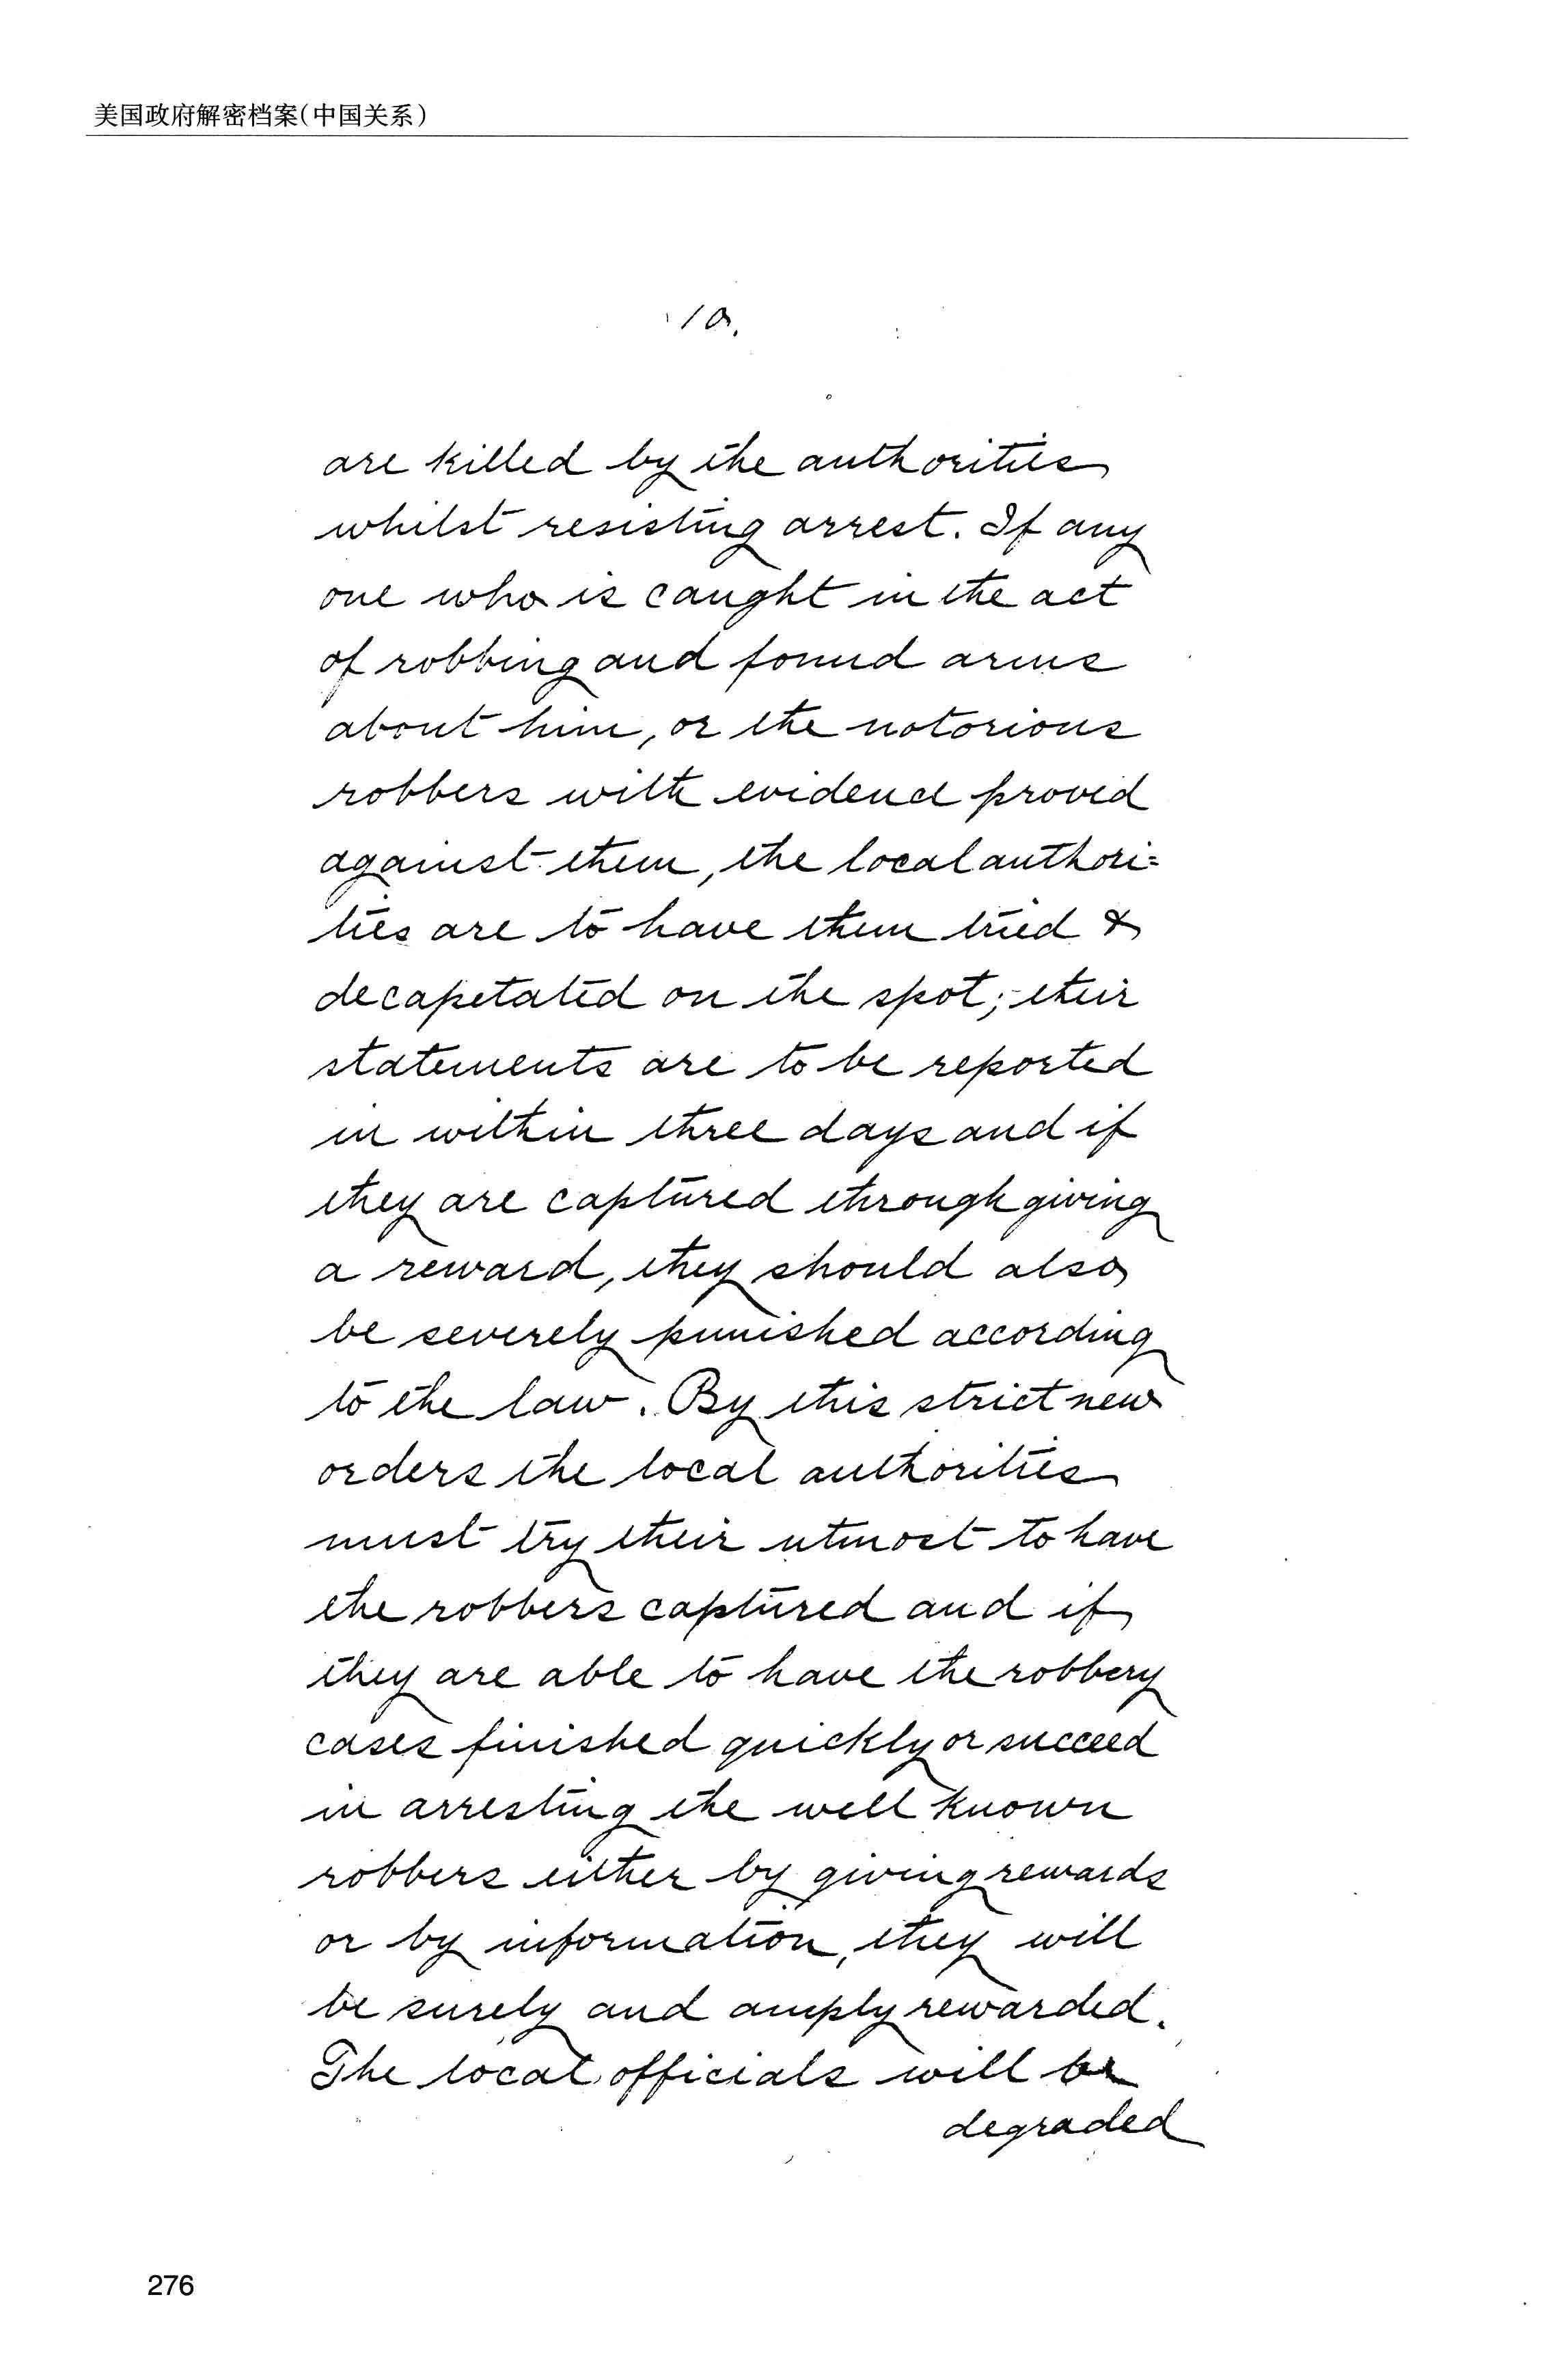 美国政府解密档案(中国关系)
10.
are killed by the authorities
whilst resisting arrest. If any
one who is caught in the act
of robbing and found arms
about him, or the notorious
robbers with evidence proved
against them, the local authori=
ties are to have them tried &
decapetated on the spot; their
statements are to be reported
in within three days and if
they are captured through giving
a reward, they should also
be severely punished according
to the law. By this strict new
orders the local authorities
must try their utmost to have
the robbers captured and if
they are able to have the robbery
cases finished quickly or succeed
in arresting the well known
robbers either by giving rewards
or by information, they will
be surely and amply rewarded.
The local officials will be
degraded
276